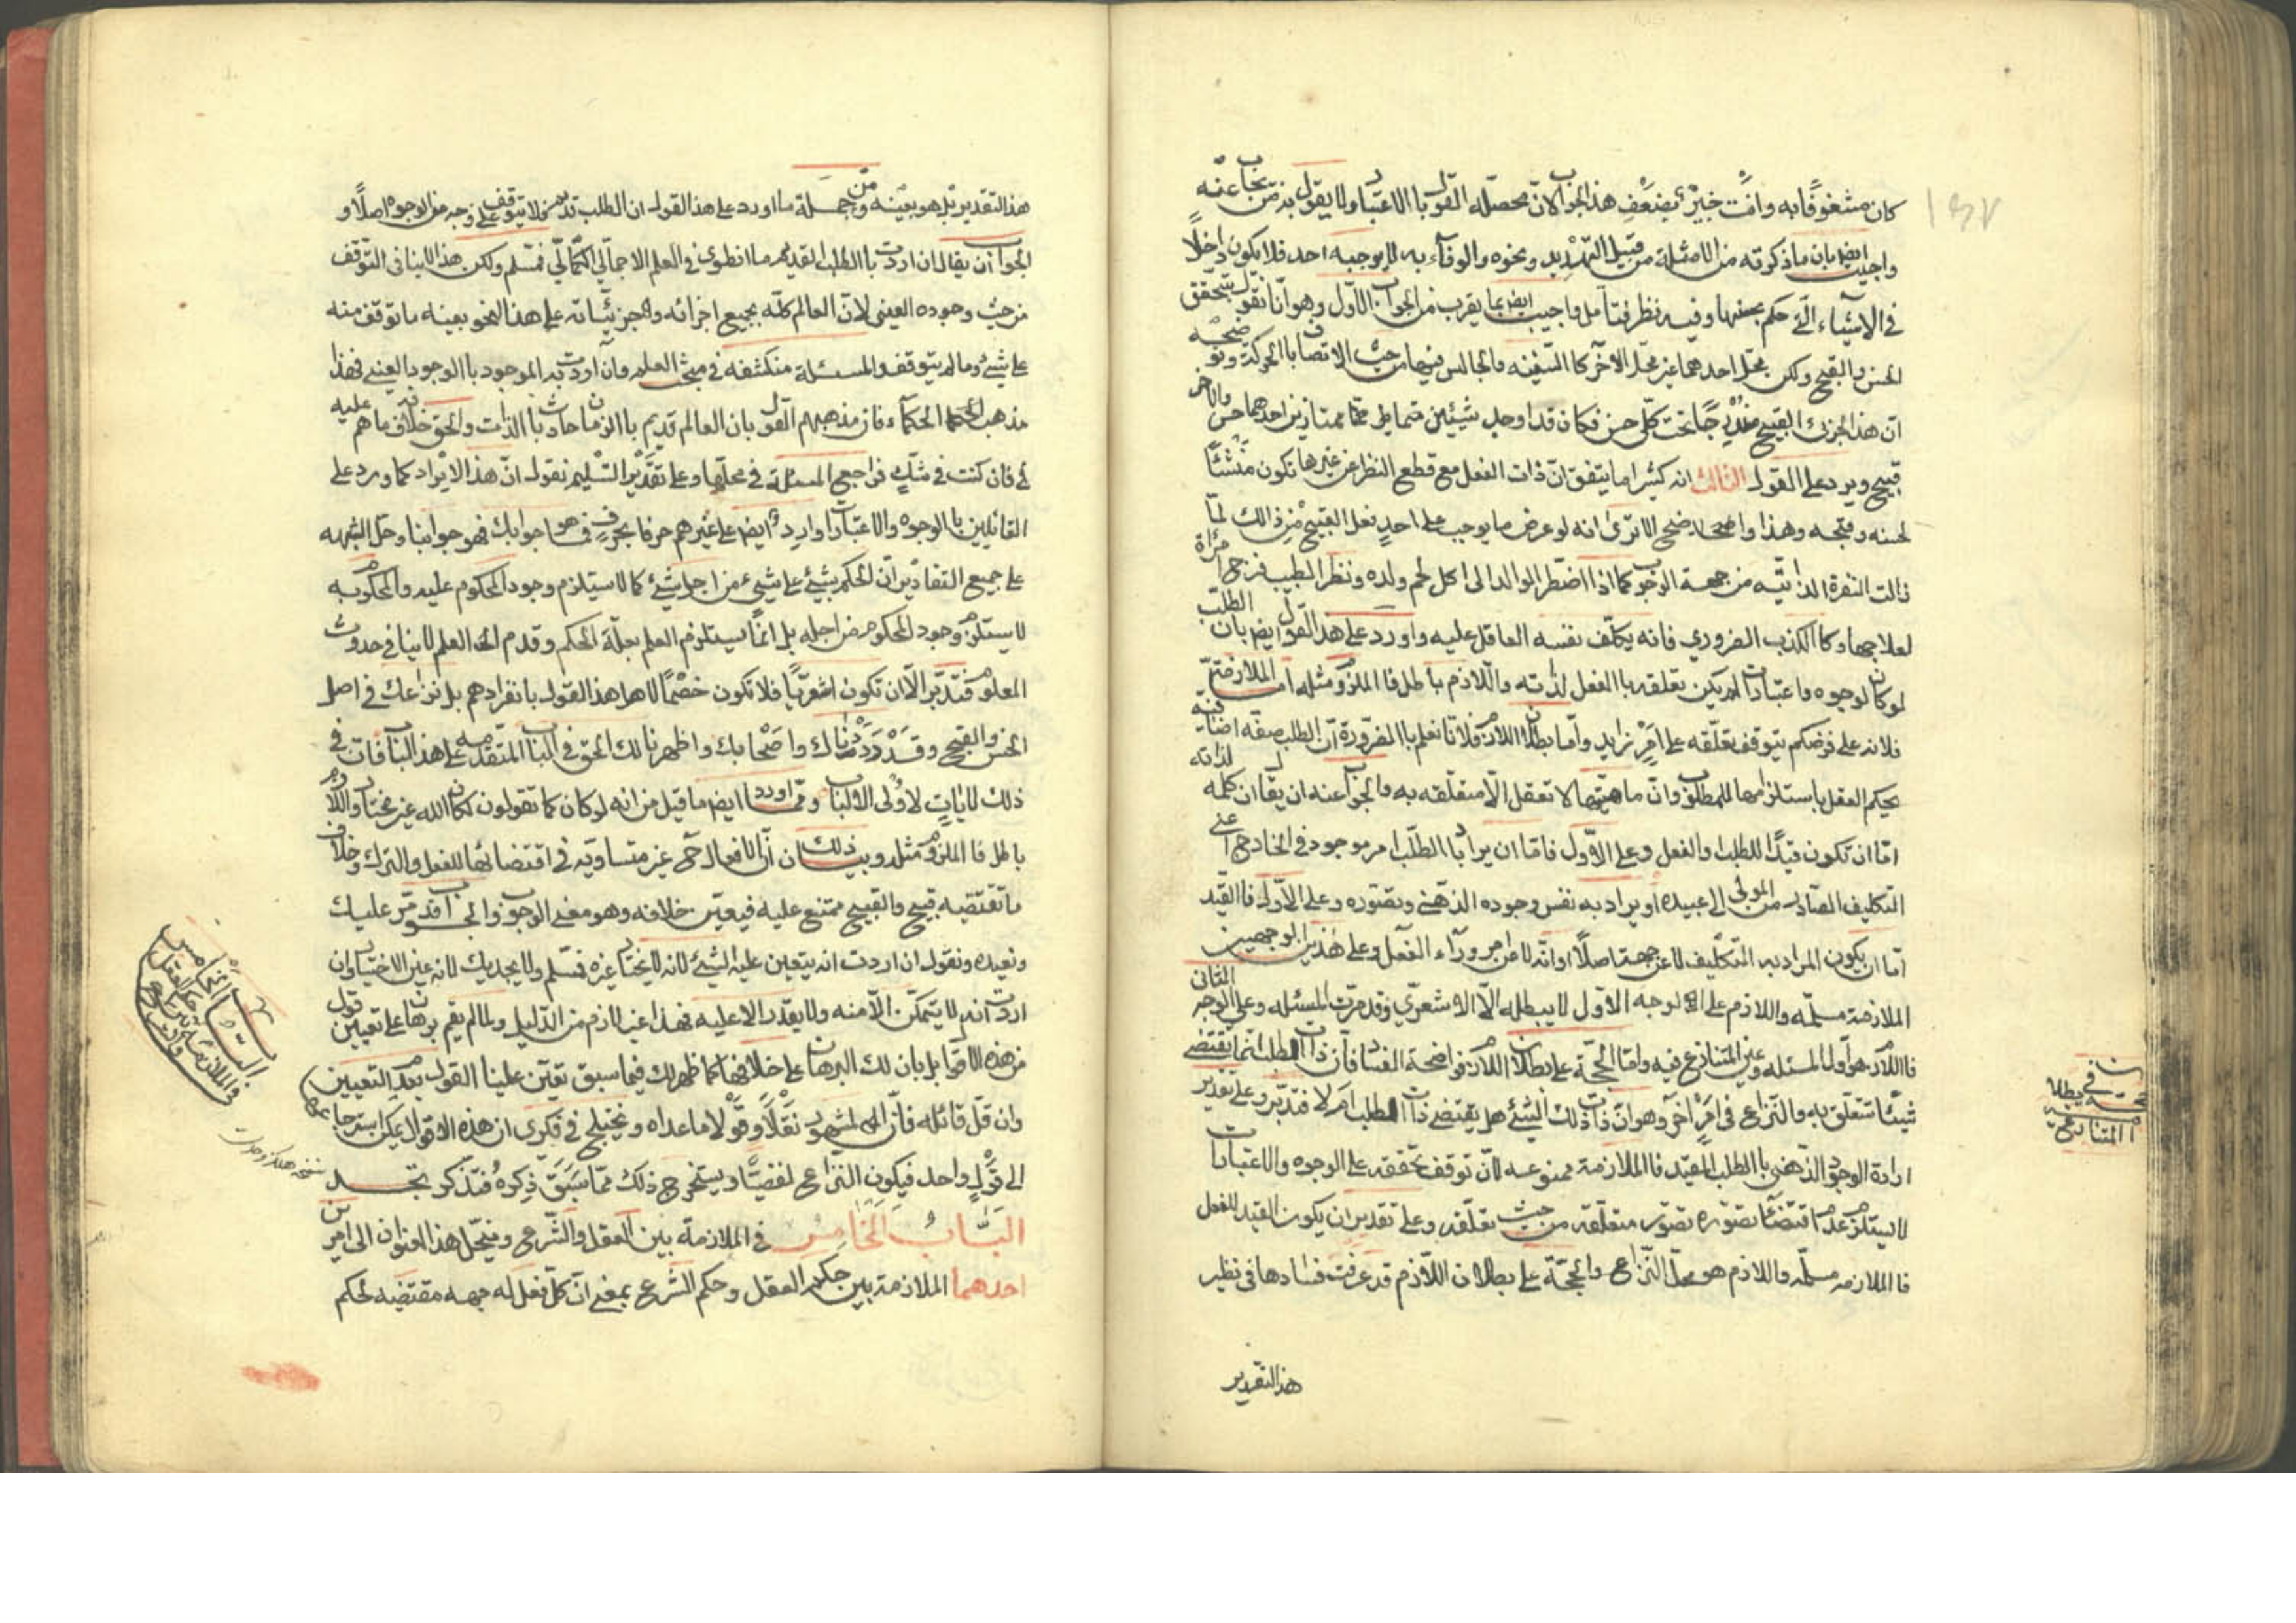 كان مشغوفًا به وانت خبير بضعف هذا الجواب لان محصله القول بالاعتبار ولا يقول به من يجاب عنه
واجيب ايضا بان ما ذكرته من الامثلة من قبيل التهديد ونحوه والوفاء به لا يوجبه احد فلا يكون داخلًا
في الاشياء التي حكم بحسنها وفيه نظر فتامل واجيب ايض بما يقرب من الجواب الاول وهو انا نقول بتحقق
الحسن والقبيح ولكن محل احدهما غير محل الآخر كالسفينه والجالس فيها من حيث الاتصاف بالحركة
ان هذا الجزئ القبيح مندرجًا تحت كلي حسن فكان قد اوجد شيئين ممتازين احدهما حسن والاخر
قبيح ويرد على القول الثالث انه كثيرا ما يتفق ان ذات الفعل مع قطع النظر عن غيرها تكون منشئًا
لحسنه وقبحه وهذا واضح الا ترى انه لو عرض ما يوجب على احد فعل القبيح من ذالك لما
زالت النفرة الذاتيه من جهة الوجوب كما اذا اضطر الوالد الى اكل لحم ولده ونظر الطبيب فرج امرأة
لعلاجها وكالكذب الضروري فانه يكلف نفسه العاقل عليه واورد على هذا القول ايض بان الطلب
لو كان لوجوه واعتبارات لم يكن تعلقه بالفعل لذاته واللازم باطل فالملزوم مثله اما الملازمة
فلانه على فرضكم يتوقف تعلقه على امر زايد واما بطلان اللازم فلانا نعلم بالضرورة ان الطلب صفة اضافية
يحكم العقل باستلزامها للمطلوب وان ماهيتها لا تعقل الا متعلقه به والجواب عنه ان يقال ان كلمة لذاته
اما ان تكون قيدًا للطلب او الفعل وعلى الاول فاما ان يراد بالطلب امر موجود في الخارج اعني
التكليف الصادر من المولى الى عبيده او يراد به نفس وجوده الذهني وتصوره وعلى الاول فالقيد
اما ان يكون المراد به التكليف لا عن جهة اصلًا او انه لا عن امر ورآء الفعل وعلى هذين الوجهين
الملازمة مسلمه واللازم على الوجه الاول لا يبطله الا الاشعري وقد مرت المسئله وعلى الوجه الثاني
فاللازم هو اول المسئله وعين المتنازع فيه واما الحجة على بطلان اللازم فواضحة الفساد فان ذات الطلب انما يقتضي
شيئًا تتعلق به والنزاع في امر آخر وهو ان ذات ذلك الشيئ هل يقتضي ذات الطلب ام لا فتدبر وعلى تقدير
ارادة الوجود الذهني بالطلب المقيد فالملازمة ممنوعه لان توقف تحققه على الوجوه والاعتبارات
لا يستلزم عدم اقتضاء تصوره تصور متعلقه من حيث تعلقه وعلى تقدير ان يكون القيد للفعل
فالملازمه مسلمه واللازم هو محل النزاع والحجة على بطلان اللازم قد عرفت فسادها في نظير
هذا التقدير
هذا التقدير بل هو بعينه ومن جملة ما اورد على هذا القول ان الطلب قديم فلا يتوقف على وجه من الوجوه اصلًا و
الجواب ان يقال ان اردت بالطلب القديم ما انطوى في العلم الاجمالي الكمالي فمسلم ولكن هذا لا ينافي التوقف
من حيث وجوده العيني لان العالم كله بجميع اجزائه وجزئياته على هذا النحو بعينه ما توقف منه
على شيئ وما لم يتوقف والمسئلة منكشفه في مبحث العلم وان اردت به الموجود بالوجود العيني فهذا
مذهب الحكمآء فان مذهبهم القول بان العالم قديم بالزمان حادث بالذات والحق خلاف ما هم عليه
فان كنت في شك فراجع المسئلة في محلها وعلى تقدير التسليم نقول ان هذا الايراد كما ورد على
القائلين بالوجوه والاعتبارات وارد ايض على غيرهم حرفا بحرف فما هو جوابك فهو جوابنا وحل الشبهه
على جميع التقادير ان الحكم بشيئ على شيئ من اجل شيئ كما لا يستلزم وجود المحكوم عليه والمحكوم به
لا يستلزم وجود المحكوم من اجله بل انما يستلزم العلم بعلة الحكم وقدم العلم لا ينافي حدوث
المعلوم فتدبر الا ان تكون اشعريًا فلا تكون خصمًا لاهل هذا القول بانفرادهم بل نزاعك في اصل
الحسن والقبيح وقد رددناك واصحابك واظهرنا لك الحق في الباب المتقدم على هذا الباب فان في
ذلك لايات لاولى الالباب ومما اورد ايضا ما قيل من انه لو كان كما تقولون لكان الله غير مختار واللازم
باطل فالملزوم مثله وبيان ذلك ان الافعال ح غير متساويه في اقتضائها للفعل والترك وخلاف
ما تقتضيه قبيح والقبيح ممتنع عليه فيتعين خلافه وهو معنى الوجوب والجواب قد مر عليك
ونعيده ونقول ان اردت انه يتعين عليه الشيئ لانه لا يختار غيره فمسلم ولا يجديك لانه عين الاختيار وان
اردت انه لا يتمكن الا منه ولا يقدر الا عليه فهذا غير لازم من الدليل ولما لم يقم برهان على تعيين قول
من هذه الاقوال بل بان لك البرهان على خلافها كما ظهر لك فيما سبق تعين علينا القول بعدم التعيين
وان قل قائله فان المشهور نقلًا وقولًا ما عداه ويختلج في فكري ان هذه الاقوال يمكن استرجاعها
الى قول واحد فيكون النزاع لفظيًا ويستخرج ذلك مما سبق ذكره فتذكر تجد
الباب الخامس في الملازمة بين العقل والشرع وينحل هذا العنوان الى امرين
احدهما الملازمة بين حكم العقل وحكم الشرع بمعنى ان كل فعل له جهه مقتضيه لحكم